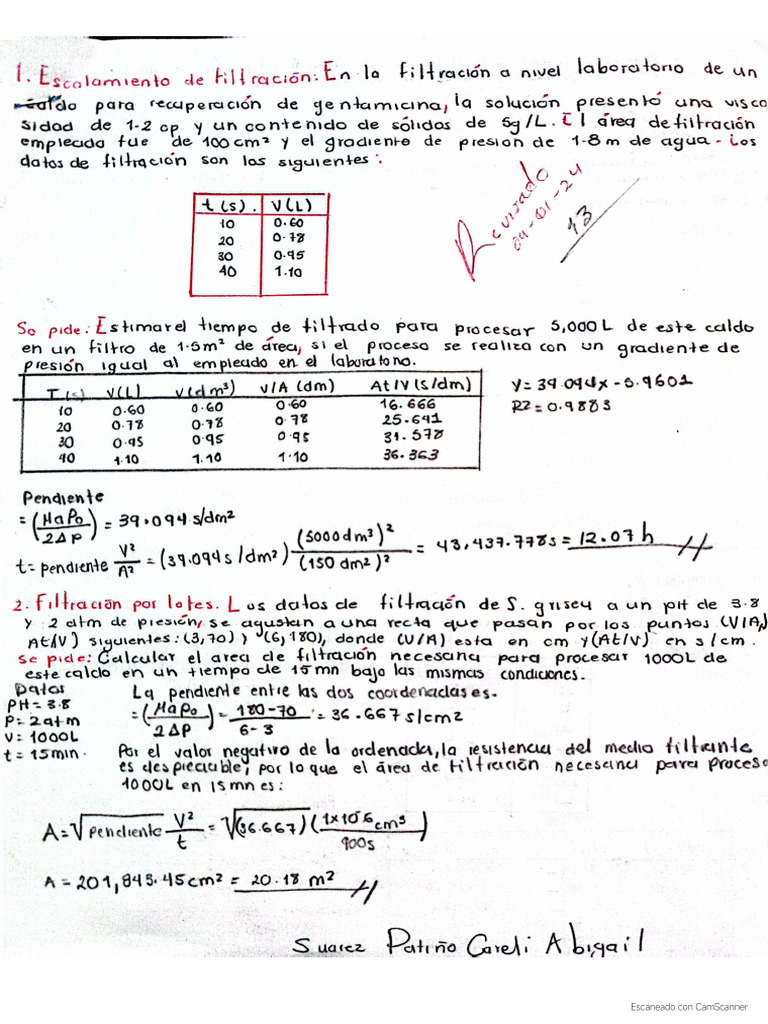 1. Escalamiento de filtración: En la filtración a nivel laboratorio de un
caldo para recuperación de gentamicina, la solución presentó una visco
sidad de 1-2 cp y un contenido de sólidos de 5g/L. El área de filtración
empleada fue de 100 cm² y el gradiente de presion de 1-8 m de agua - Los
datos de filtración son los siguientes:
t (s). V(L)
10 0.60
20 0.78
30 0.95
40 1.10
Revisado
09-01-24
13
Se pide: Estimar el tiempo de filtrado para procesar 5,000 L de este caldo
en un filtro de 1.5m² de área, si el proceso se realiza con un gradiente de
presión igual al empleado en el laboratorio.
T(s) V(L) V(dm³) V/A (dm) At/V (s/dm)
10 0.60 0.60 0.60 16.666
20 0.78 0.78 0.78 25.641
30 0.95 0.95 0.95 31.578
40 1.10 1.10 1.10 36.363
Y= 39.094x - 5.9601
R2= 0.9883
Pendiente
= (MaPo / 2ΔP) = 39.094 s/dm²
t= pendiente V²/A² = (39.094 s/dm²) (5000 dm³)²/(150 dm²)² = 43,437.778s = 12.07 h
2. Filtración por lotes. Los datos de filtración de S. griseu a un pit de 3.8
y 2 atm de presión, se ajustan a una recta que pasan por los puntos (V/A),
At/V) siguientes: (3,70) y (6,180), donde (V/A) esta en cm y (At/V) en s/cm.
Se pide: Calcular el area de filtración necesaria para procesar 1000L de
este caldo en un tiempo de 15 mn bajo las mismas condiciones.
Datos
PH= 3.8
P= 2atm
V= 1000L
t= 15min.
La pendiente entre las dos coordenadas es.
= (MaPo / 2ΔP) = 180-70 / 6-3 = 36.667 s/cm2
Por el valor negativo de la ordenada, la resistencia del medio filtrante
es despreciable, por lo que el área de filtración necesaria para proceso
1000L en 15mn es:
A= √pendiente V²/t = √(36.667) (1x10^6 cm³ / 900s)
A= 201,843.45cm² = 20.18 m²
Suarez Patiño Careli Abigail
Escaneado con CamScanner